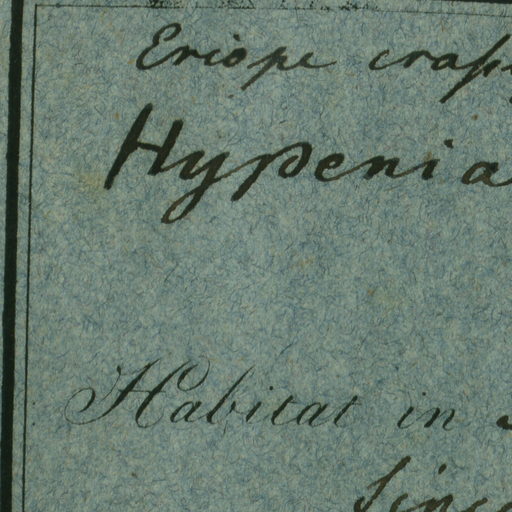 Eriope crass
Hypenia
Habitat in